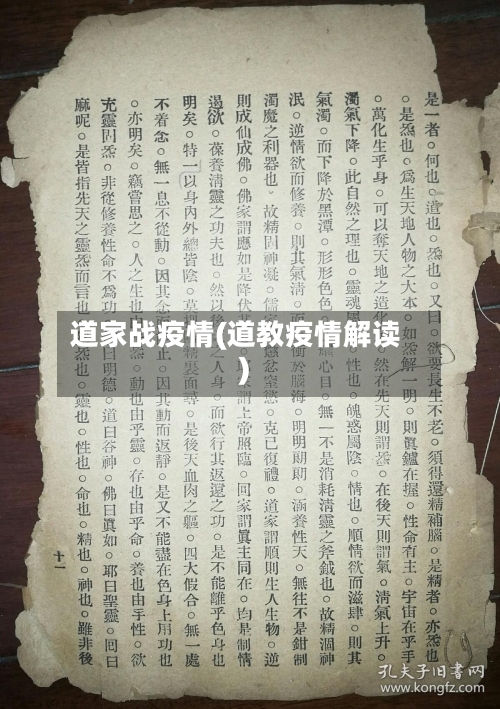 是一者。何也。道也。炁也。又曰。欲要長生不老。須得還精補腦。是精者。亦炁也
。是炁也。爲生天地人物之大本。如炁解一明。則眞鑪在握。性命有主。宇宙在乎手
。萬化生乎身。可以奪天地之造化。然在先天則謂炁。在後天則謂氣。清氣上升。
濁氣下降。此自然之理也。靈魂屬性也。魄惑屬陰。情也。順情欲而滋肆。則其
氣濁。而下降於黑潭。形形色色心目。無一不是消耗清靈之斧鉞也。故精涸神
泯。逆情欲而修養。則其氣清。而衝於腦海。明明朗朗。涵養性天。無往不是鉗制
濁魔之利器也。故精固神凝。儒忿窒慾。克已復禮。道家謂順則生人生物。逆
則成仙成佛。佛家謂應如是降伏謂上帝照臨。回家謂眞主同在。均是制情
遏欲。葆養清靈之功夫也。然以後之人身。而欲行其返還之功。是不能離乎色身也
明矣。特一以身內外總皆陰。莫裏面尋。是後天血肉之軀。四大假合。無一處
不着念。無一息不從動。因其念而止。因其動而返靜。是又不能盡在色身上用功也
。亦明矣。竊嘗思之。人之生也炁。動也由乎靈。存也由乎命。養也由乎性。欲
充靈固炁。非從修養性命不爲功曰明德。道曰谷神。佛曰眞如。耶曰聖靈。回曰
麻呢。是皆指先天之靈炁而言也炁也。靈也。性也。命也。精也。神也。雖非後
十一
道家战疫情(道教疫情解读
)
孔夫子旧书网
www.kongfz.com